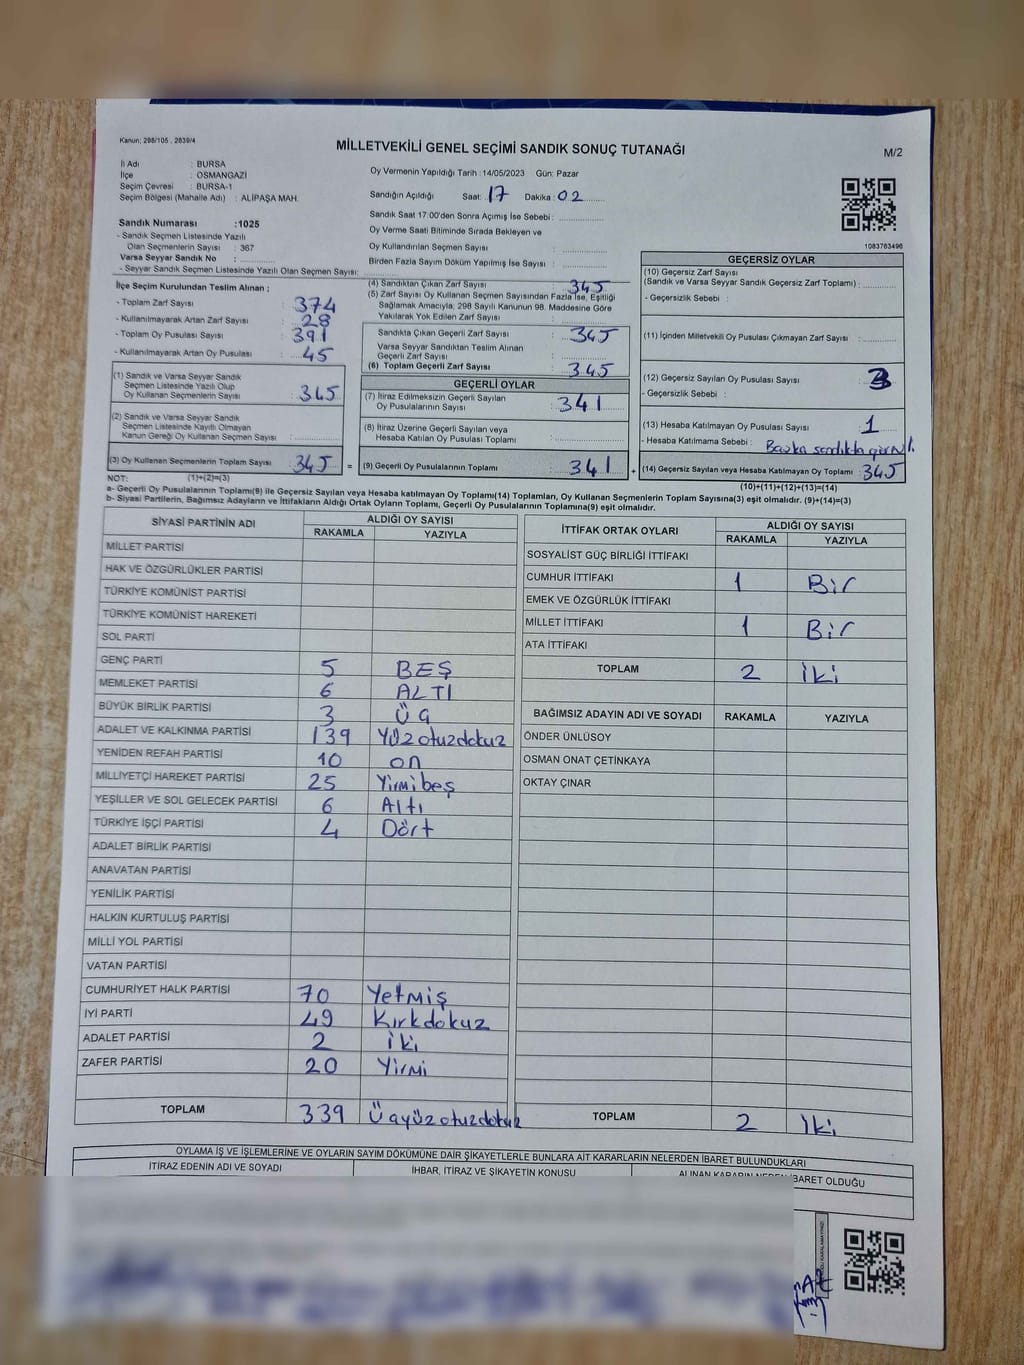 Kanun; 298/105 , 2839/4
MİLLETVEKİLİ GENEL SEÇİMİ SANDIK SONUÇ TUTANAĞI
M/2
İl Adı : BURSA
İlçe : OSMANGAZİ
Seçim Çevresi : BURSA-1
Seçim Bölgesi (Mahalle Adı) : ALİPAŞA MAH.
Oy Vermenin Yapıldığı Tarih :14/05/2023 Gün: Pazar
Sandığın Açıldığı Saat: 17 Dakika: 02
Sandık Saat 17:00'den Sonra Açımış İse Sebebi :
Oy Verme Saati Bitiminde Sırada Bekleyen ve
Oy Kullandırılan Seçmen Sayısı :
Birden Fazla Sayım Döküm Yapılmış İse Sayısı :
1083763496
Sandık Numarası :1025
- Sandık Seçmen Listesinde Yazılı
Olan Seçmenlerin Sayısı : 367
Varsa Seyyar Sandık No :
- Seyyar Sandık Seçmen Listesinde Yazılı Olan Seçmen Sayısı:
İlçe Seçim Kurulundan Teslim Alınan ;
- Toplam Zarf Sayısı : 374
- Kullanılmayarak Artan Zarf Sayısı : 28
- Toplam Oy Pusulası Sayısı : 391
- Kullanılmayarak Artan Oy Pusulası : 45
(1) Sandık ve Varsa Seyyar Sandık
Seçmen Listesinde Yazılı Olup
Oy Kullanan Seçmenlerin Sayısı : 345
(2) Sandık ve Varsa Seyyar Sandık
Seçmen Listesinde Kaydı Olmayan
Kanun Gereği Oy Kullanan Seçmen Sayısı :
(3) Oy Kullanan Seçmenlerin Toplam Sayısı : 345 =
(4) Sandıktan Çıkan Zarf Sayısı : 345
(5) Zarf Sayısı Oy Kullanan Seçmen Sayısından Fazla İse, Eşitliği
Sağlamak Amacıyla, 298 Sayılı Kanunun 98. Maddesine Göre
Yakılarak Yok Edilen Zarf Sayısı :
Sandıkta Çıkan Geçerli Zarf Sayısı : 345
Varsa Seyyar Sandıktan Teslim Alınan
Geçerli Zarf Sayısı :
(6) Toplam Geçerli Zarf Sayısı : 345
GEÇERLİ OYLAR
(7) İtiraz Edilmeksizin Geçerli Sayılan
Oy Pusulalarının Sayısı : 341
(8) İtiraz Üzerine Geçerli Sayılan veya
Hesaba Katılan Oy Pusulası Toplamı :
(9) Geçerli Oy Pusulalarının Toplamı : 341 +
GEÇERSİZ OYLAR
(10) Geçersiz Zarf Sayısı
(Sandık ve Varsa Seyyar Sandık Geçersiz Zarf Toplamı) :
- Geçersizlik Sebebi :
(11) İçinden Milletvekili Oy Pusulası Çıkmayan Zarf Sayısı :
(12) Geçersiz Sayılan Oy Pusulası Sayısı : 3
- Geçersizlik Sebebi :
(13) Hesaba Katılmayan Oy Pusulası Sayısı : 1
- Hesaba Katılmama Sebebi : Başka sandıkta
(14) Geçersiz Sayılan veya Hesaba Katılmayan Oy Toplamı : 345
NOT: (1)+(2)=(3)
(10)+(11)+(12)+(13)=(14)
a- Geçerli Oy Pusulalarının Toplamı(9) ile Geçersiz Sayılan veya Hesaba katılmayan Oy Toplamı(14) Toplamları, Oy Kullanan Seçmenlerin Toplam Sayısına(3) eşit olmalıdır. (9)+(14)=(3)
b- Siyasi Partilerin, Bağımsız Adayların ve İttifakların Aldığı Ortak Oyların Toplamı, Geçerli Oy Pusulalarının Toplamına(9) eşit olmalıdır.
SİYASİ PARTİNİN ADI ALDIĞI OY SAYISI
RAKAMLA YAZIYLA
MİLLET PARTİSİ
HAK VE ÖZGÜRLÜKLER PARTİSİ
TÜRKİYE KOMÜNİST PARTİSİ
TÜRKİYE KOMÜNİST HAREKETİ
SOL PARTİ
GENÇ PARTİ 5 BEŞ
MEMLEKET PARTİSİ 6 ALTI
BÜYÜK BİRLİK PARTİSİ 3 Üç
ADALET VE KALKINMA PARTİSİ 139 Yüzotuzdokuz
YENİDEN REFAH PARTİSİ 10 on
MİLLİYETÇİ HAREKET PARTİSİ 25 Yirmibeş
YEŞİLLER VE SOL GELECEK PARTİSİ 6 Altı
TÜRKİYE İŞÇİ PARTİSİ 4 Dört
ADALET BİRLİK PARTİSİ
ANAVATAN PARTİSİ
YENİLİK PARTİSİ
HALKIN KURTULUŞ PARTİSİ
MİLLİ YOL PARTİSİ
VATAN PARTİSİ
CUMHURİYET HALK PARTİSİ 70 Yetmiş
İYİ PARTİ 49 Kırkdokuz
ADALET PARTİSİ 2 iki
ZAFER PARTİSİ 20 Yirmi
TOPLAM 339 Üçyüzotuzdokuz
İTTİFAK ORTAK OYLARI ALDIĞI OY SAYISI
RAKAMLA YAZIYLA
SOSYALİST GÜÇ BİRLİĞİ İTTİFAKI
CUMHUR İTTİFAKI 1 Bir
EMEK VE ÖZGÜRLÜK İTTİFAKI
MİLLET İTTİFAKI 1 Bir
ATA İTTİFAKI
TOPLAM 2 İki
BAĞIMSIZ ADAYIN ADI VE SOYADI RAKAMLA YAZIYLA
ÖNDER ÜNLÜSOY
OSMAN ONAT ÇETİNKAYA
OKTAY ÇINAR
TOPLAM 2 İki
OYLAMA İŞ VE İŞLEMLERİNE VE OYLARIN SAYIM DÖKÜMÜNE DAİR ŞİKAYETLERLE BUNLARA AİT KARARLARIN NELERDEN İBARET BULUNDUKLARI
İTİRAZ EDENİN ADI VE SOYADI İHBAR, İTİRAZ VE ŞİKAYETİN KONUSU ALINAN KARARIN NEDEN İBARET OLDUĞU